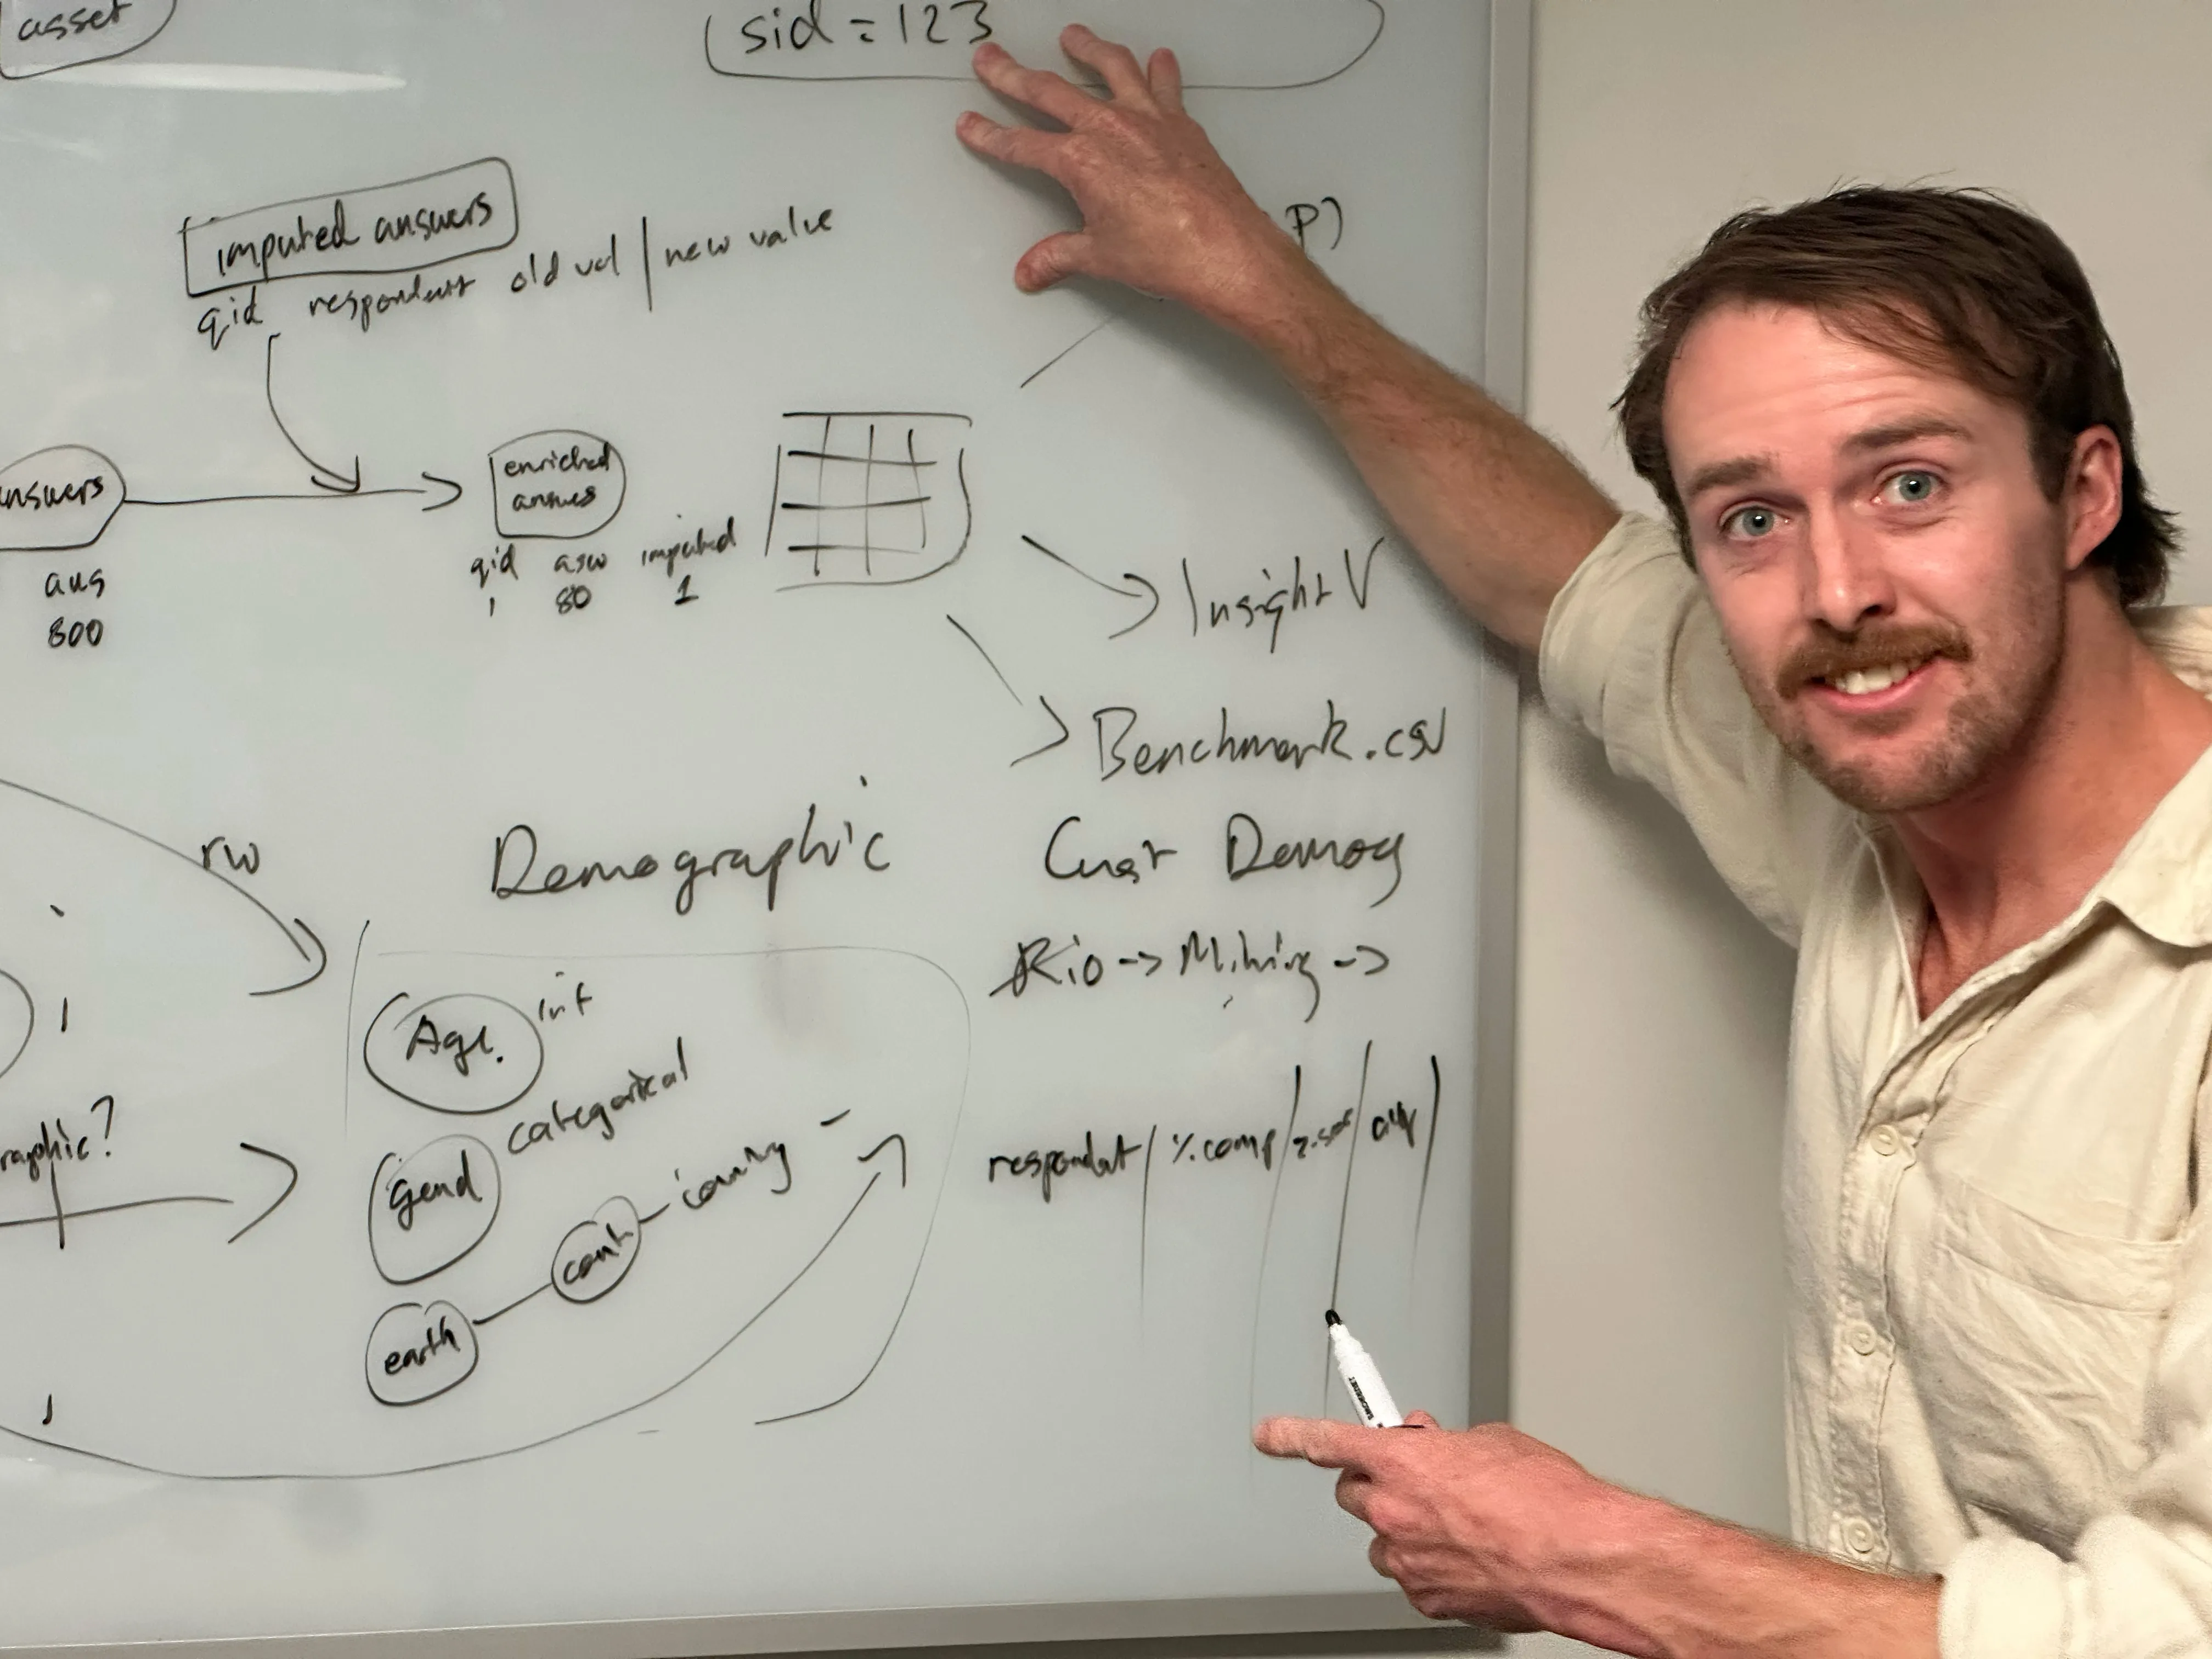 asset
sid = 123
imputed answers
qid respondent old val | new value
P)
enriched
answers
qid answ imputed
1 80 1
ans
800
Insight V
Benchmark.csv
rw
Demographic
Cust Demog
Rio -> Mining ->
Age.
int
categorical
gend
country
cont
earth
raphic?
respondent | %.comp | | avg |